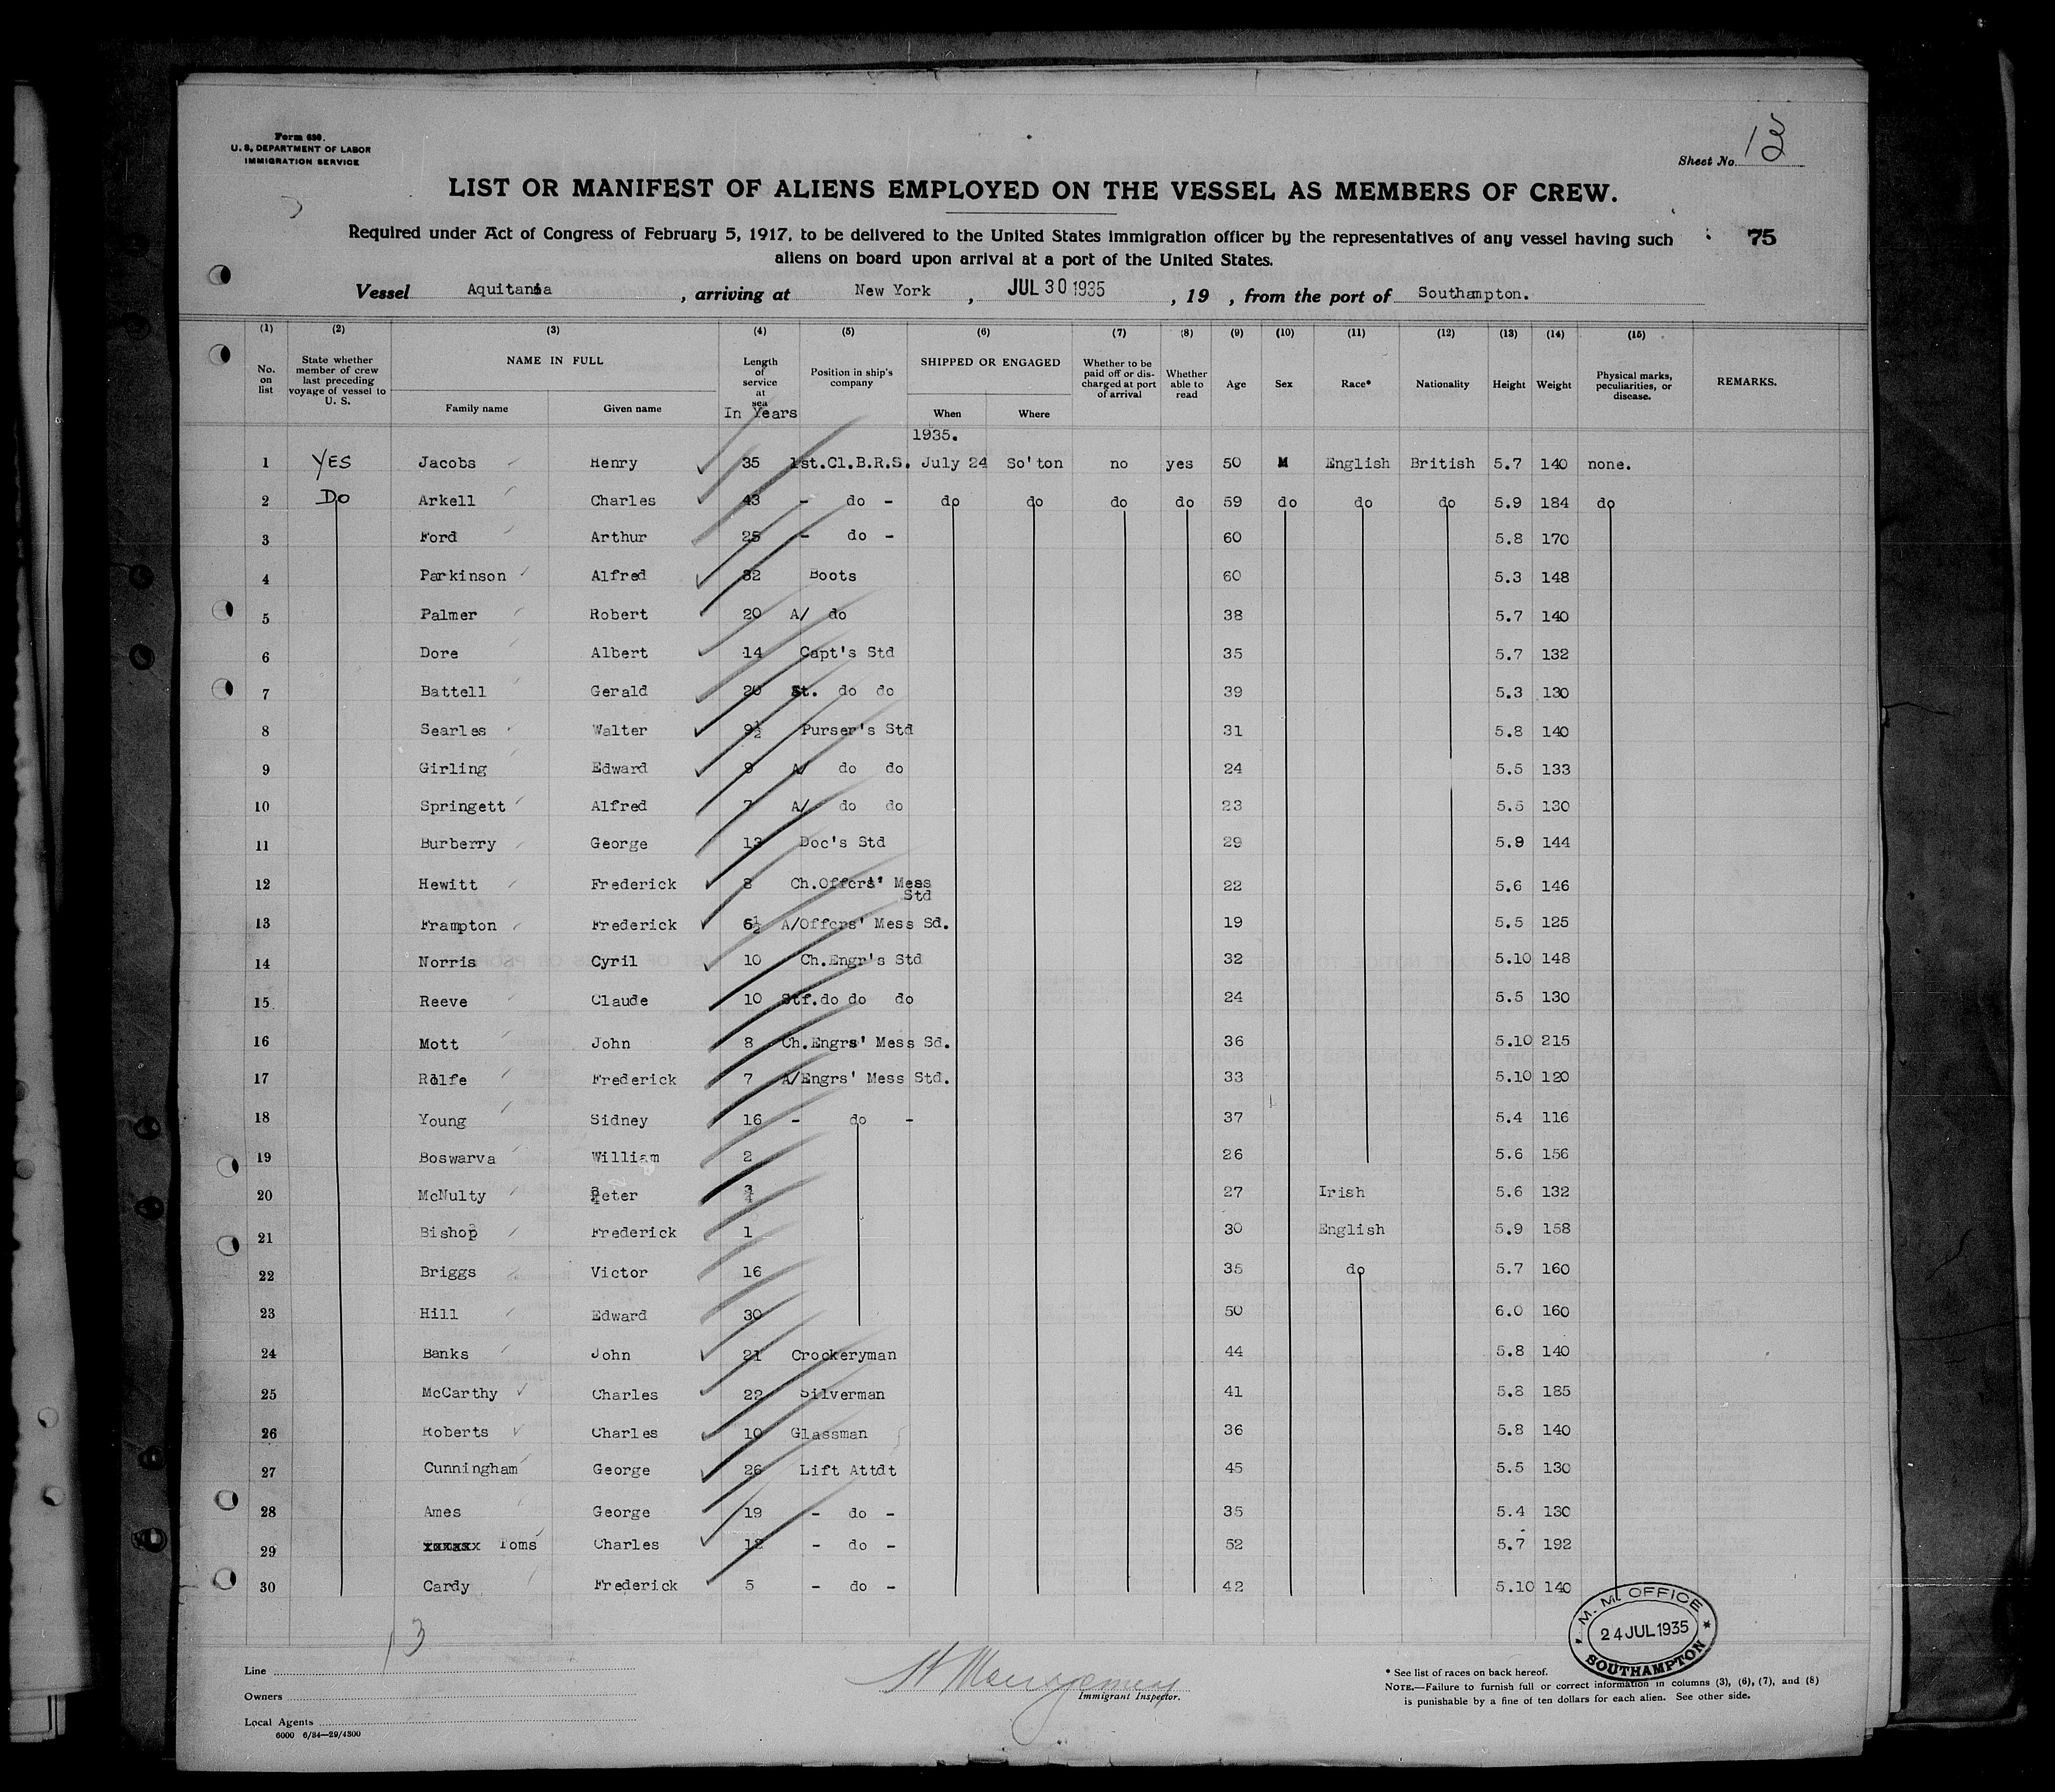 Form 680.
U. S. DEPARTMENT OF LABOR
IMMIGRATION SERVICE
Sheet No. 13
LIST OR MANIFEST OF ALIENS EMPLOYED ON THE VESSEL AS MEMBERS OF CREW.
Required under Act of Congress of February 5, 1917, to be delivered to the United States immigration officer by the representatives of any vessel having such
75
aliens on board upon arrival at a port of the United States.
Vessel Aquitania, arriving at New York, JUL 30 1935, 19 , from the port of Southampton.
(1) (2) (3) (4) (5) (6) (7) (8) (9) (10) (11) (12) (13) (14) (15)
No. on list State whether member of crew last preceding voyage of vessel to U. S. NAME IN FULL Family name Given name Length of service at sea In Years Position in ship's company SHIPPED OR ENGAGED When Where Whether to be paid off or discharged at port of arrival Whether able to read Age Sex Race* Nationality Height Weight Physical marks, peculiarities, or disease. REMARKS.
1935.
1 YES Jacobs Henry 35 1st.Cl.B.R.S. July 24 So'ton no yes 50 M English British 5.7 140 none.
2 Do Arkell Charles 43 - do - do do do do 59 do do do 5.9 184 do
3 Ford Arthur 25 - do - 60 5.8 170
4 Parkinson Alfred 32 Boots 60 5.3 148
5 Palmer Robert 20 A/ do 38 5.7 140
6 Dore Albert 14 Capt's Std 35 5.7 132
7 Battell Gerald 20 St. do do 39 5.3 130
8 Searles Walter 9½ Purser's Std 31 5.8 140
9 Girling Edward 9 A/ do do 24 5.5 133
10 Springett Alfred 7 A/ do do 23 5.5 130
11 Burberry George 13 Doc's Std 29 5.9 144
12 Hewitt Frederick 8 Ch.Offcrs' Mess Std 22 5.6 146
13 Frampton Frederick 6½ A/Offcrs' Mess Sd. 19 5.5 125
14 Norris Cyril 10 Ch.Engr's Std 32 5.10 148
15 Reeve Claude 10 Stf.do do do 24 5.5 130
16 Mott John 8 Ch.Engrs' Mess Sd. 36 5.10 215
17 Rolfe Frederick 7 A/Engrs' Mess Std. 33 5.10 120
18 Young Sidney 16 - do - 37 5.4 116
19 Boswarva William 2 26 5.6 156
20 McNulty Peter ¾ 27 Irish 5.6 132
21 Bishop Frederick 1 30 English 5.9 158
22 Briggs Victor 16 35 do 5.7 160
23 Hill Edward 30 50 6.0 160
24 Banks John 21 Crockeryman 44 5.8 140
25 McCarthy Charles 22 Silverman 41 5.8 185
26 Roberts Charles 10 Glassman 36 5.8 140
27 Cunningham George 26 Lift Attdt 45 5.5 130
28 Ames George 19 - do - 35 5.4 130
29 xxxxxx Toms Charles 12 - do - 52 5.7 192
30 Cardy Frederick 5 - do - 42 5.10 140
13
M. M. OFFICE
24 JUL 1935
SOUTHAMPTON
Line
Owners
Local Agents
6000 6/34—29/4300
Immigrant Inspector.
* See list of races on back hereof.
NOTE.—Failure to furnish full or correct information in columns (3), (6), (7), and (8)
is punishable by a fine of ten dollars for each alien. See other side.